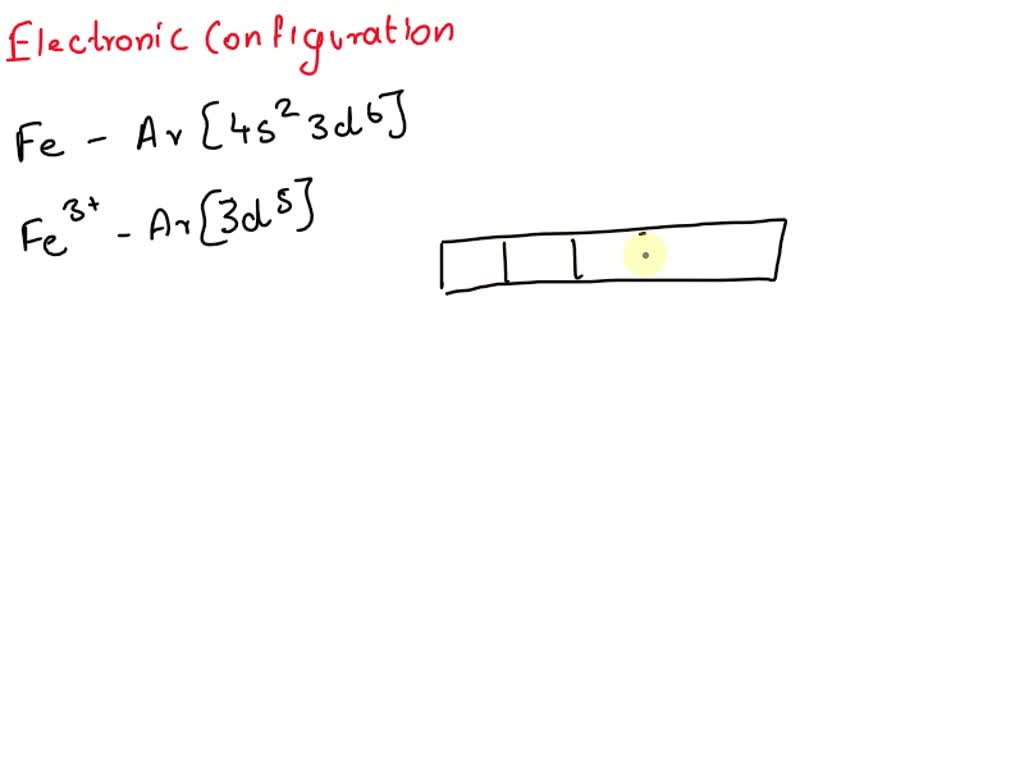 Electronic Configuration
Fe - Ar [4s² 3d⁶]
Fe³⁺ - Ar [3d⁵]